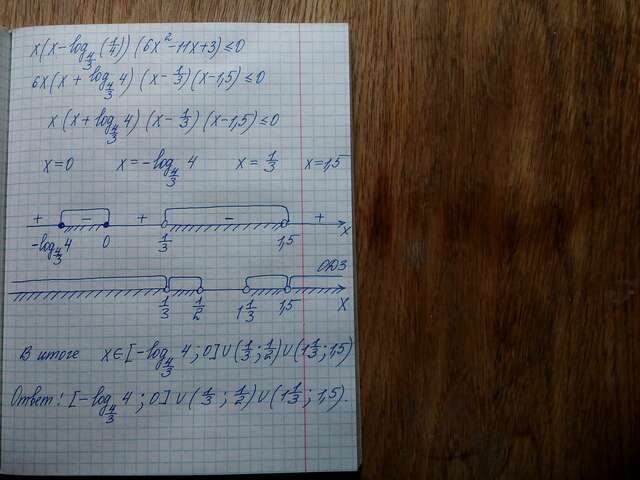 x(x-log_{4/3}(1/4))(6x²-11x+3)≤0
6x(x+log_{4/3}4)(x-1/3)(x-1,5)≤0
x(x+log_{4/3}4)(x-1/3)(x-1,5)≤0
x=0 x=-log_{4/3}4 x=1/3 x=1,5
+ - + - +
-log_{4/3}4 0 1/3 1,5 x
ОДЗ
1/3 1/2 1 1/3 1,5 x
В итоге x∈[-log_{4/3}4;0]∪(1/3;1/2)∪(1 1/3;1,5)
Ответ: [-log_{4/3}4;0]∪(1/3;1/2)∪(1 1/3;1,5).